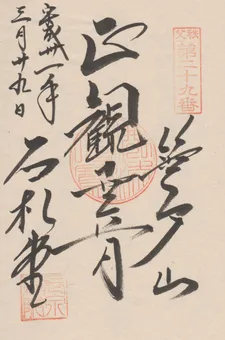 秩父
第二十九番
笹戸山
正觀世音
石札堂
平成卅一年
三月廿九日